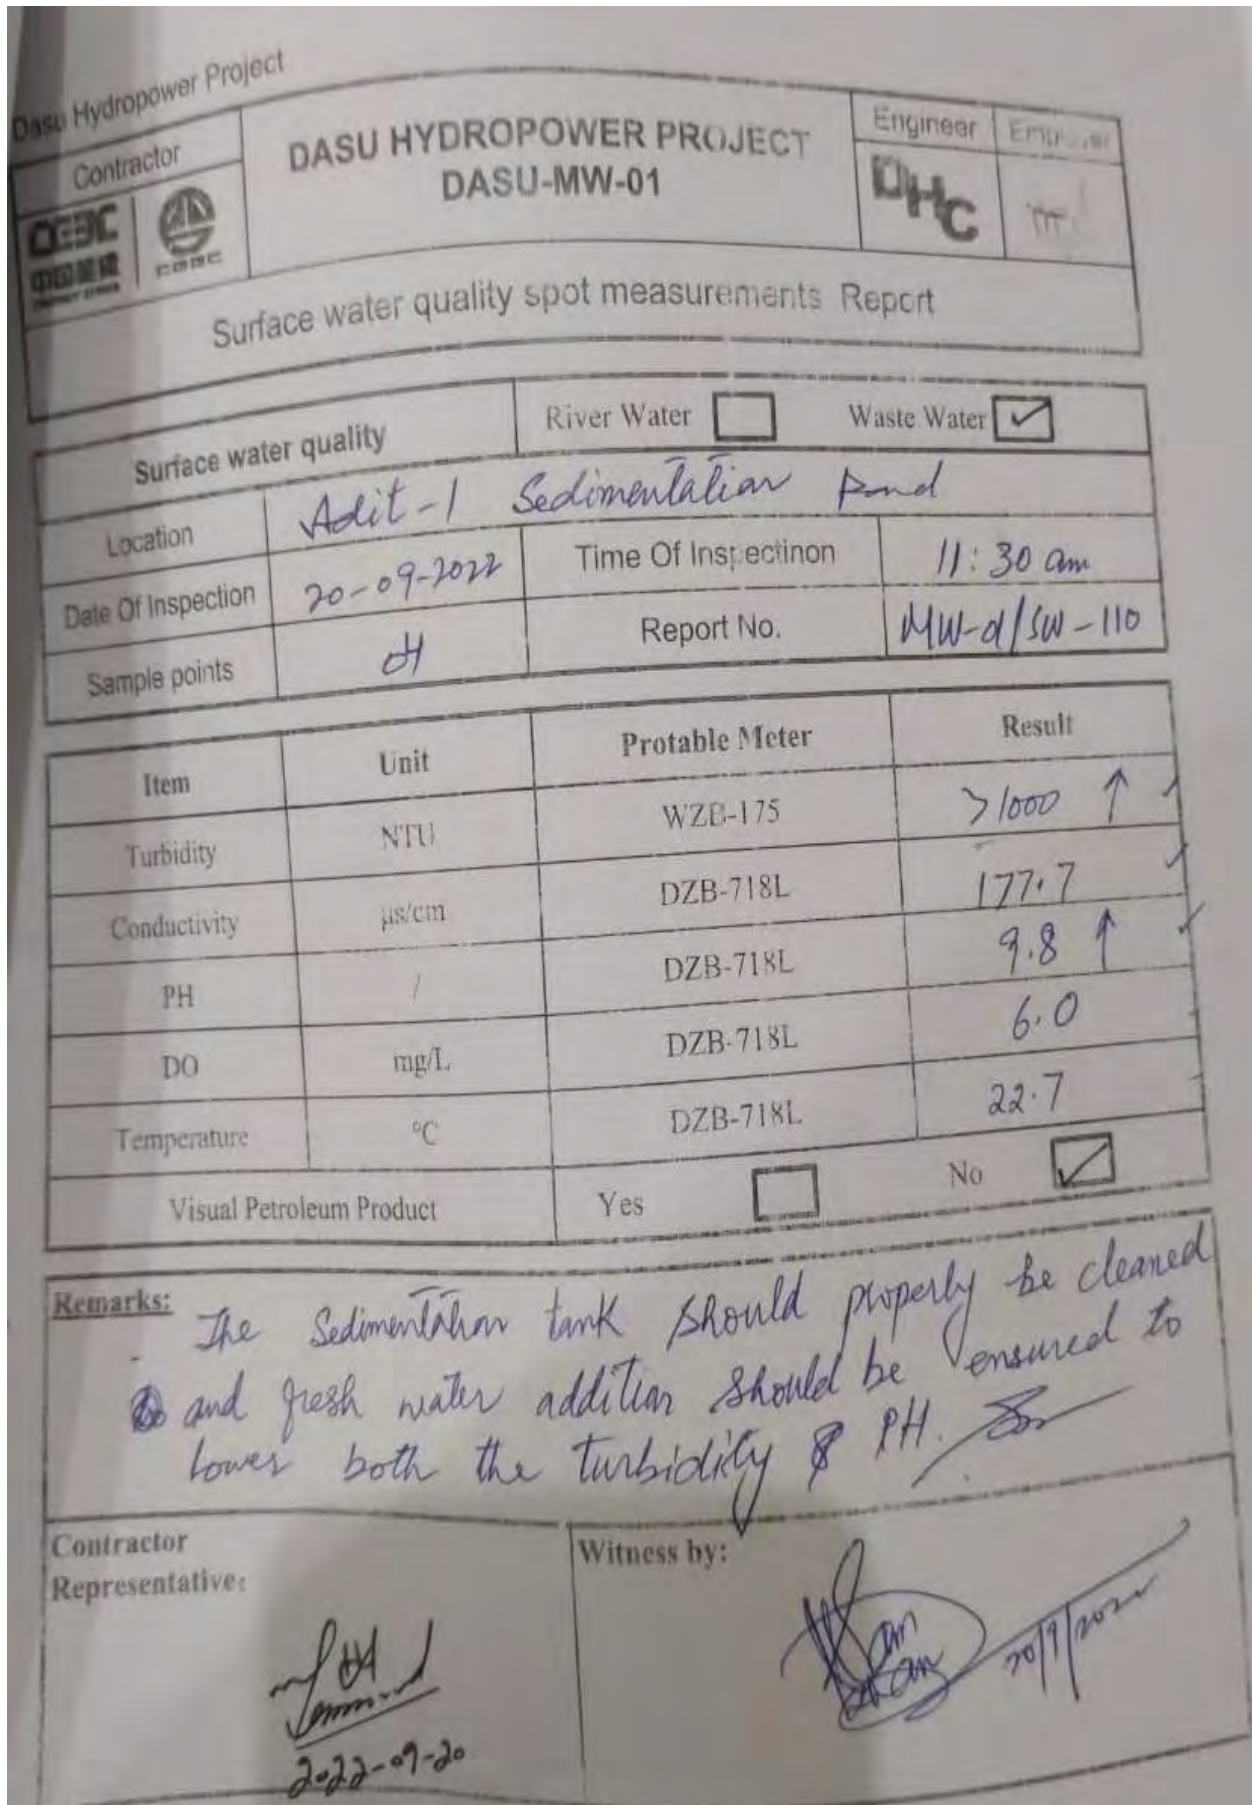 Dasu Hydropower Project
Contractor
DASU HYDROPOWER PROJECT
DASU-MW-01
Engineer
DHC
CGGC
Surface water quality spot measurements Report
Surface water quality River Water Waste Water ✓
Location Adit-1 Sedimentation Pond
Date Of Inspection 20-09-2022 Time Of Inspectinon 11:30 am
Sample points 01 Report No. MW-01/SW-110
Item Unit Protable Meter Result
Turbidity NTU WZB-175 >1000 ↑
Conductivity µs/cm DZB-718L 177.7
PH / DZB-718L 9.8 ↑
DO mg/L DZB-718L 6.0
Temperature °C DZB-718L 22.7
Visual Petroleum Product Yes No ✓
Remarks: The Sedimentation tank should properly be cleaned
and fresh water addition should be ensured to
lower both the turbidity & PH.
Contractor
Representative:
2022-09-20
Witness by:
20/9/2022